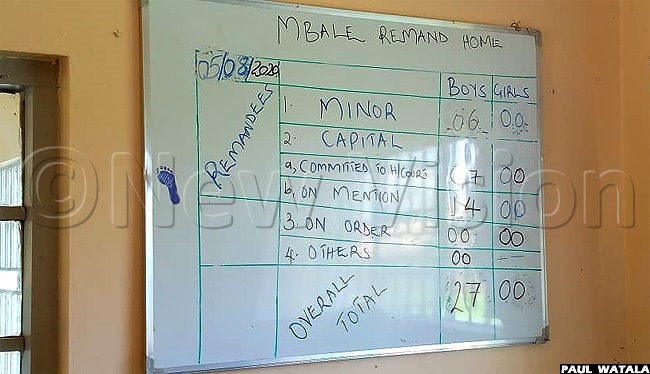 MBALE REMAND HOME
05/08/2020
BOYS GIRLS
REMANDEES
1. MINOR 06 00
2. CAPITAL
a, COMMITTED TO H/COURT 07 00
b, ON MENTION 14 00
3. ON ORDER 00 00
4. OTHERS 00 —
OVERALL TOTAL 27 00
©New Vision
PAUL WATALA